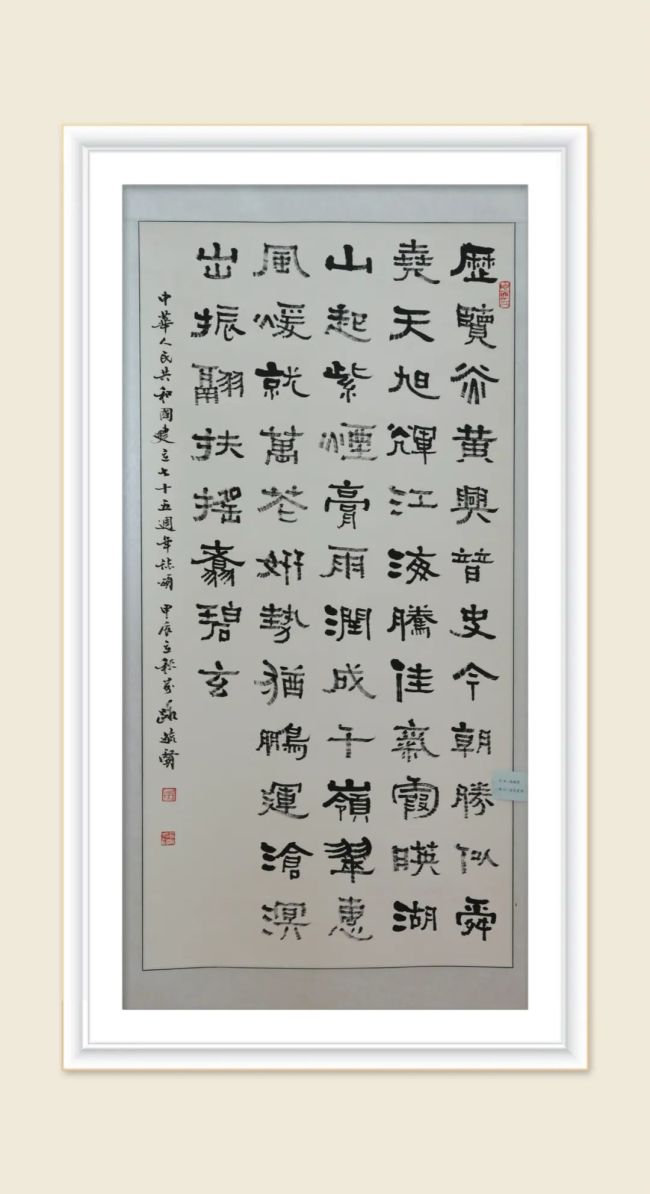 歷覽炎黃興替史今朝勝似舜
堯天旭輝江海騰佳氣霞暎湖
山起紫煙膏雨潤成千嶺翠惠
風煖就萬花妍勢猶鵬運滄溟
出振翮扶搖翥碧玄
中華人民共和國建立七十五週年誌頌 甲辰立秋 路毓賢